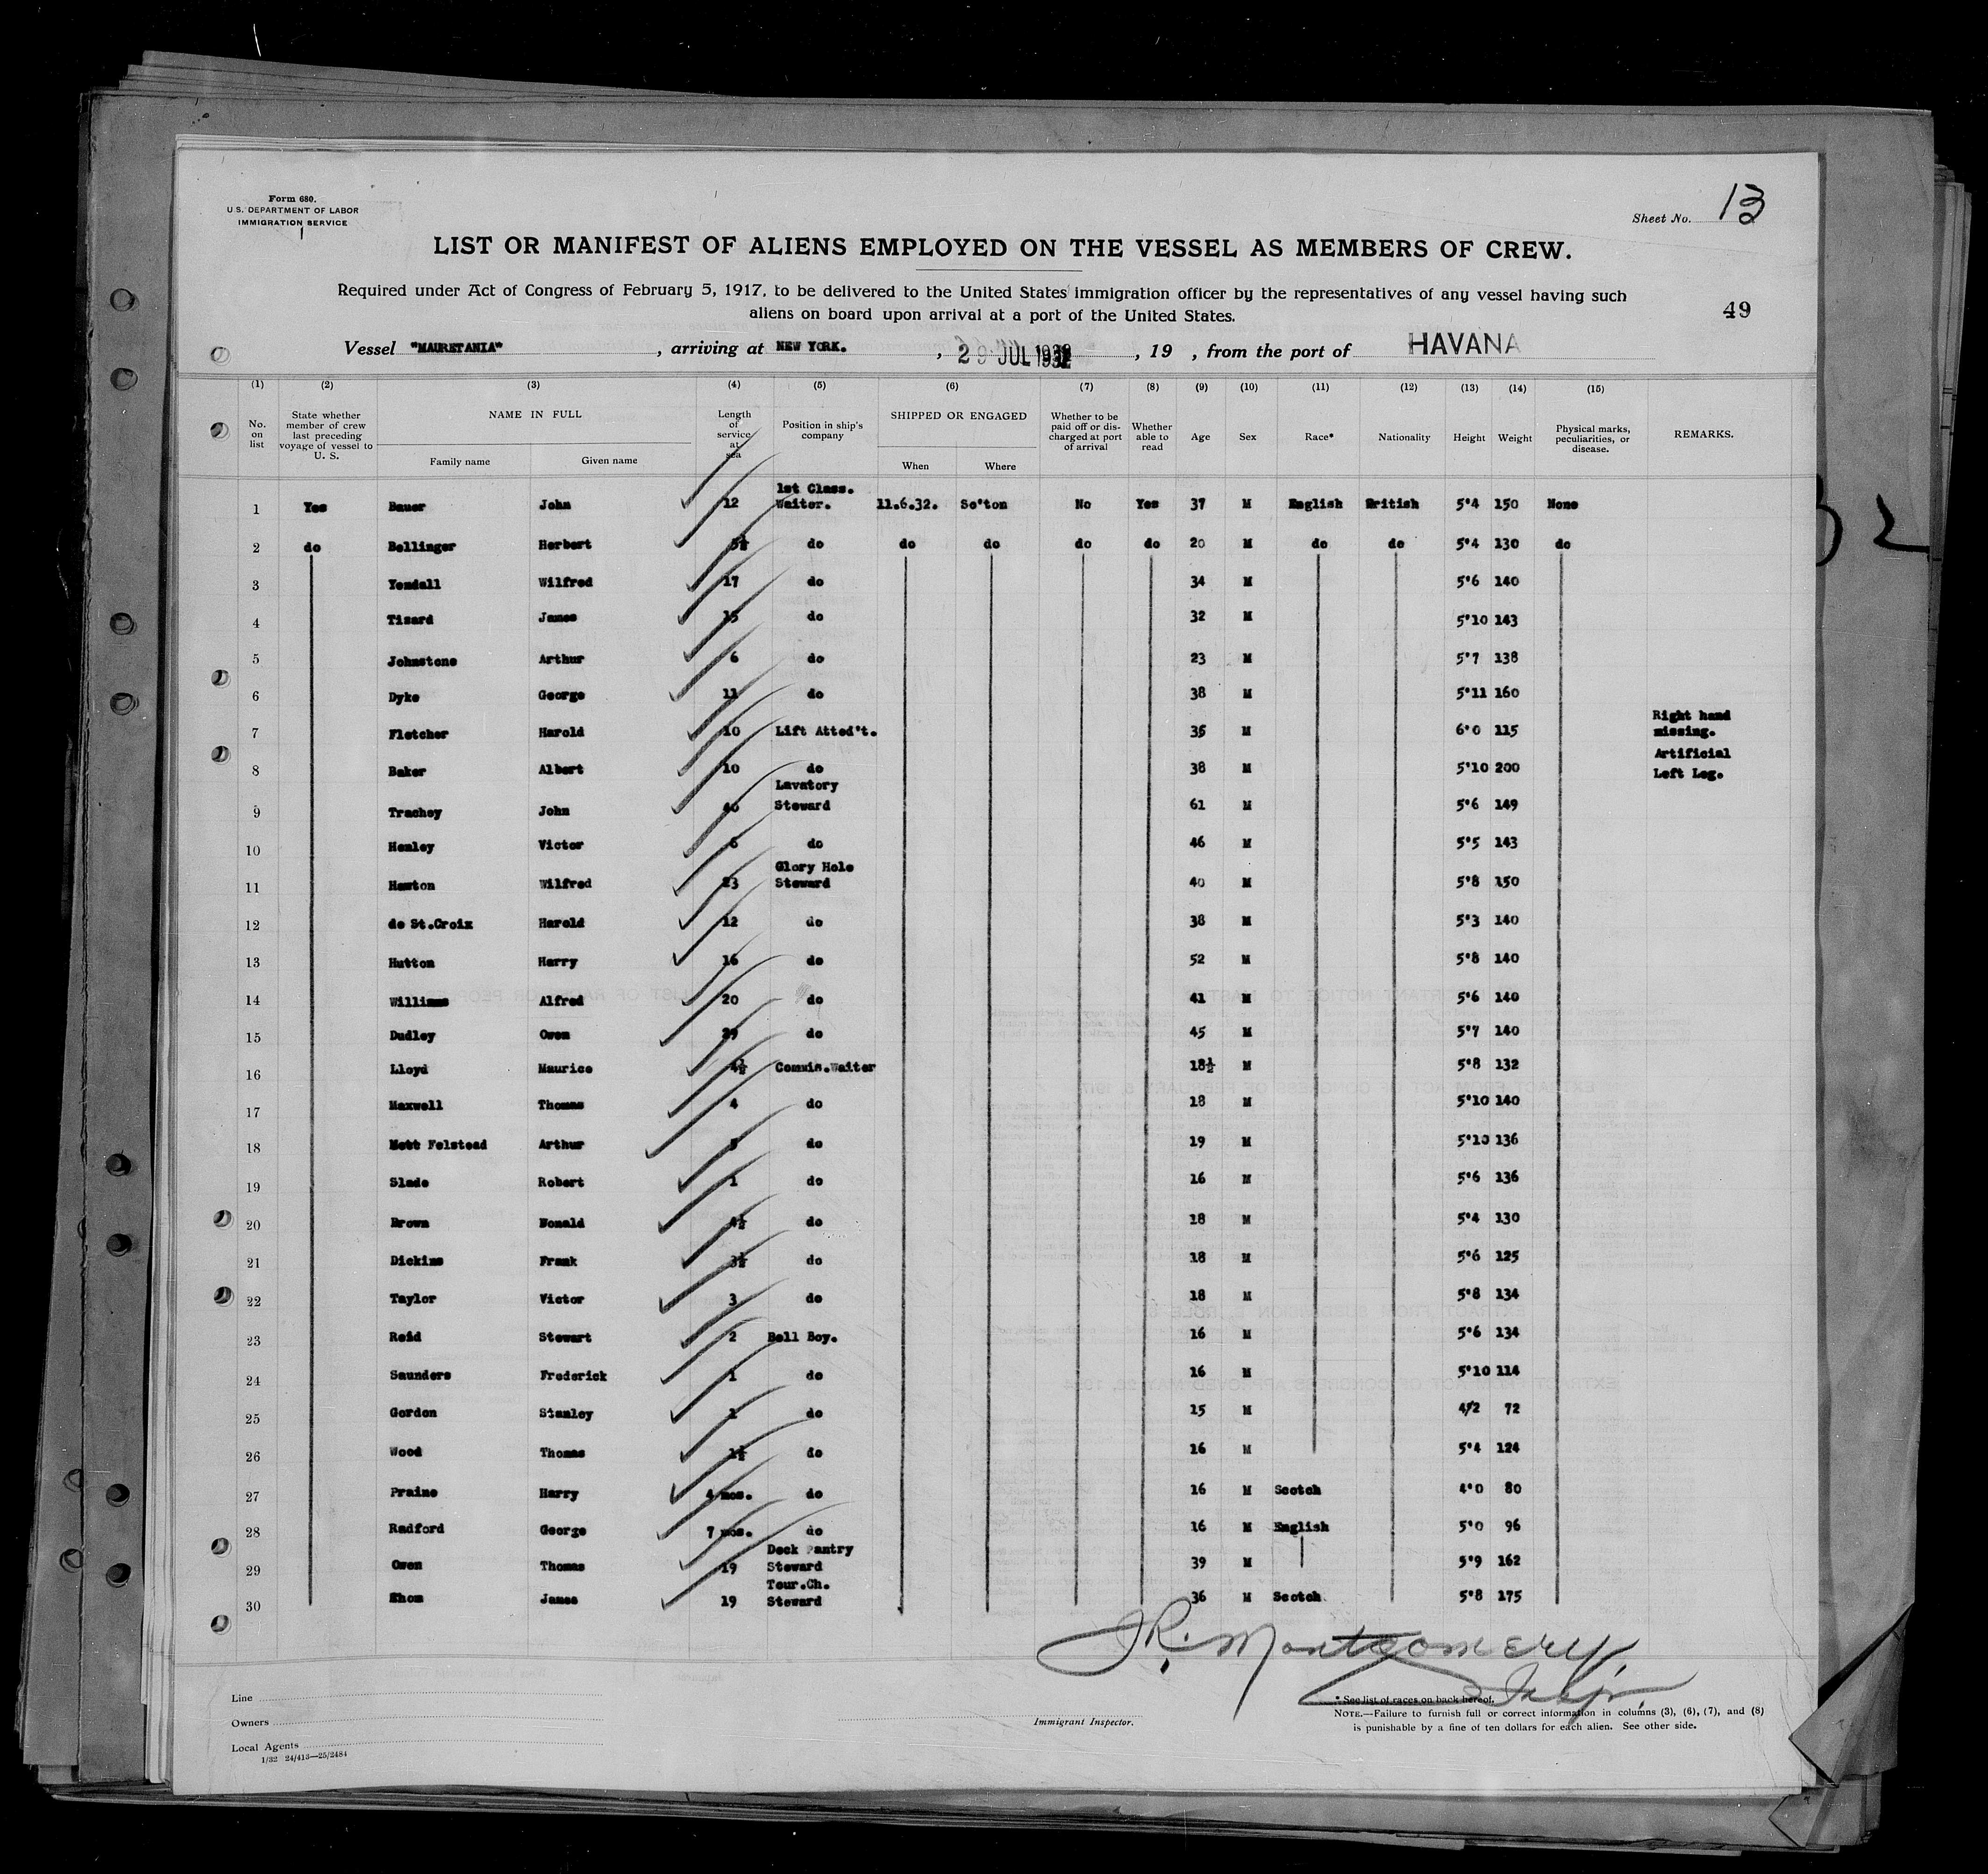 Form 680.
U.S. DEPARTMENT OF LABOR
IMMIGRATION SERVICE
Sheet No. 13
LIST OR MANIFEST OF ALIENS EMPLOYED ON THE VESSEL AS MEMBERS OF CREW.
Required under Act of Congress of February 5, 1917, to be delivered to the United States immigration officer by the representatives of any vessel having such
aliens on board upon arrival at a port of the United States.
49
Vessel "MAURETANIA", arriving at NEW YORK., 29 JUL 1932, 19 , from the port of HAVANA
(1) (2) (3) (4) (5) (6) (7) (8) (9) (10) (11) (12) (13) (14) (15)
No. on list | State whether member of crew last preceding voyage of vessel to U. S. | NAME IN FULL | Family name | Given name | Length of service at sea | Position in ship's company | SHIPPED OR ENGAGED | When | Where | Whether to be paid off or discharged at port of arrival | Whether able to read | Age | Sex | Race* | Nationality | Height | Weight | Physical marks, peculiarities, or disease. | REMARKS.
1 Yes Bauer John 12 1st Class. Waiter. 11.6.32. So'ton No Yes 37 M English British 5'4 150 None
2 do Bellinger Herbert 5½ do do do do do 20 M do do 5'4 130 do
3 Yendall Wilfred 17 do 34 M 5'6 140
4 Tizard James 15 do 32 M 5'10 143
5 Johnstone Arthur 6 do 23 M 5'7 138
6 Dyke George 11 do 38 M 5'11 160
7 Fletcher Harold 10 Lift Atted't. 35 M 6'0 115 Right hand missing.
8 Baker Albert 10 do 38 M 5'10 200 Artificial Left Leg.
9 Trachey John 40 Lavatory Steward 61 M 5'6 149
10 Henley Victor 6 do 46 M 5'5 143
11 Hewton Wilfred 23 Glory Hole Steward 40 M 5'8 150
12 de St.Croix Harold 12 do 38 M 5'3 140
13 Hutton Harry 16 do 52 M 5'8 140
14 Williams Alfred 20 do 41 M 5'6 140
15 Dudley Owen 29 do 45 M 5'7 140
16 Lloyd Maurice 4½ Commis.Waiter 18½ M 5'8 132
17 Maxwell Thomas 4 do 18 M 5'10 140
18 Mott Felstead Arthur 5 do 19 M 5'10 136
19 Slade Robert 1 do 16 M 5'6 136
20 Brown Donald 4½ do 18 M 5'4 130
21 Dickins Frank 3½ do 18 M 5'6 125
22 Taylor Victor 3 do 18 M 5'8 134
23 Reid Stewart 2 Bell Boy. 16 M 5'6 134
24 Saunders Frederick 1 do 16 M 5'10 114
25 Gordon Stanley 1 do 15 M 4'2 72
26 Wood Thomas 1½ do 16 M 5'4 124
27 Praine Harry 4 mos. do 16 M Scotch 4'0 80
28 Radford George 7 mos. do 16 M English 5'0 96
29 Owen Thomas 19 Deck Pantry Steward 39 M 5'9 162
30 James 19 Tour.Ch. Steward 36 M Scotch 5'8 175
JR. Montgomery
Insp.
Line
Owners
Local Agents
1/32 24/413—25/2484
Immigrant Inspector.
* See list of races on back hereof.
NOTE.—Failure to furnish full or correct information in columns (3), (6), (7), and (8)
is punishable by a fine of ten dollars for each alien. See other side.